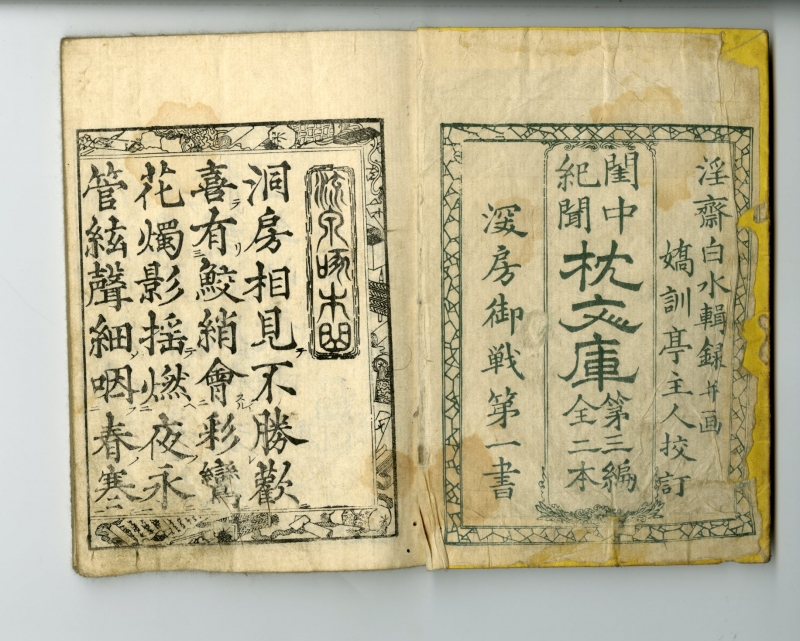 淫齋白水輯録并画
嬌訓亭主人挍訂
閨中
紀聞
枕文庫
第三編
全二本
深房御戦第一書
洞房相見不勝歡
喜有鮫綃會彩鸞
花燭影揺燃夜永
管絃聲細咽春寒